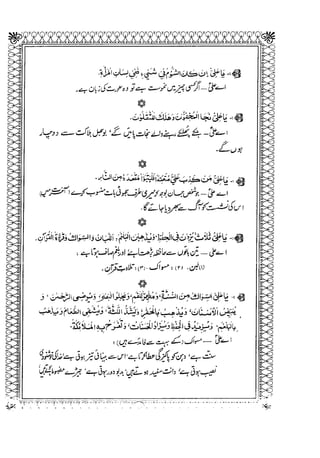 يَا عَلِيُّ اِنْ كَانَ الشُّوْمُ فِيْ شَيْءٍ فَفِيْ لِسَانِ الْمَرْأَةِ۔
اے علیؑ — اگر کسی چیز میں نحوست ہے تو وہ عورت کی زبان ہے۔
يَا عَلِيُّ نَجَا الْمُخِفُّوْنَ وَهَلَكَ الْمُثْقَلُوْنَ۔
اے علیؑ — ہلکے پھلکے رہنے والے نجات پائیں گے، بوجھل ہلاکت سے دوچار
ہوں گے۔
يَا عَلِيُّ مَنْ كَذَبَ عَلَيَّ مُتَعَمِّدًا فَلْيَتَبَوَّأْ مَقْعَدَهُ مِنَ النَّارِ۔
اے علیؑ — جو شخص جان بوجھ کر میری طرف جھوٹی بات منسوب کرے
اس کی نشست کو آگ سے بھر دیا جائے گا۔
يَا عَلِيُّ ثَلَاثٌ يَزِدْنَ فِي الْحِفْظِ وَيُذْهِبْنَ الْبَلْغَمَ، اَللُّبَانُ وَالسِّوَاكُ وَقِرَاءَةُ الْقُرْآنِ۔
اے علیؑ — تین باتوں سے حافظہ بڑھتا ہے اور بلغم صاف ہوتا ہے،
(۲) مسواک (۳) تلاوت قرآن۔
يَا عَلِيُّ السِّوَاكُ مِنَ السُّنَّةِ وَمَطْهَرَةٌ لِلْفَمِ وَيَجْلُو الْبَصَرَ وَيُرْضِي الرَّحْمٰنَ وَ
يُبَيِّضُ الْاَسْنَانَ وَيَذْهَبُ بِالْحَفْرِ وَيَشُدُّ اللِّثَةَ وَيُشَهِّي الطَّعَامَ وَيَذْهَبُ
بِالْبَلْغَمِ وَيَزِيْدُ فِي الْحِفْظِ وَيُضَاعِفُ الْحَسَنَاتِ وَتَفْرَحُ بِهِ الْمَلَائِكَةُ۔
اے علیؑ — مسواک کے بہت سے فائدے ہیں:
سنت ہے، دہن کو پاکیزگی عطا کرتا ہے، اس سے بینائی تیز ہوتی ہے، خدا کی خوشنودی
نصیب ہوتی ہے، دانت سفید ہوتے ہیں، بدبو دور ہوتی ہے، جبڑے مضبوط ہوتے ہیں